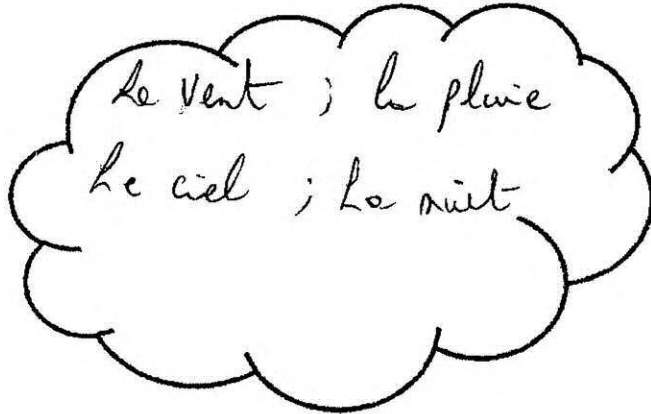 Le vent ; la pluie
Le ciel ; La nuit